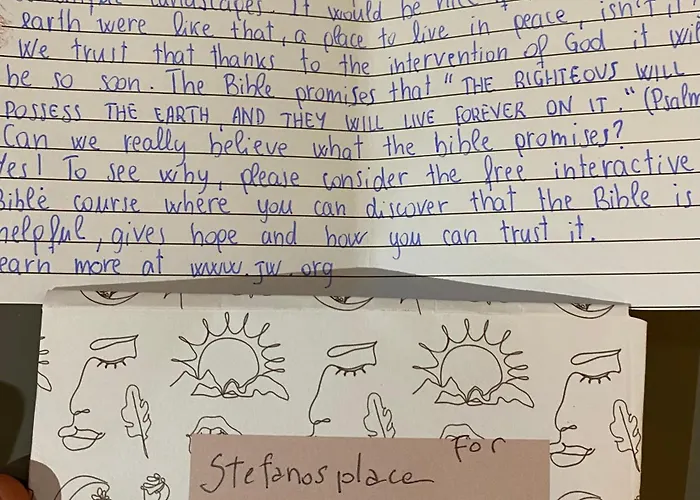 landscapes. It would be
earth were like that, a place to live in peace, isn't it
We trust that thanks to the intervention of God it wil
be so soon. The Bible promises that "THE RIGHTEOUS WILL
POSSESS THE EARTH AND THEY WILL LIVE FOREVER ON IT." (Psalm
Can we really believe what the bible promises?
Yes! To see why, please consider the free interactive
Bible course where you can discover that the Bible is
helpful, gives hope and how you can trust it.
earn more at www.jw.org
For
Stefanos place